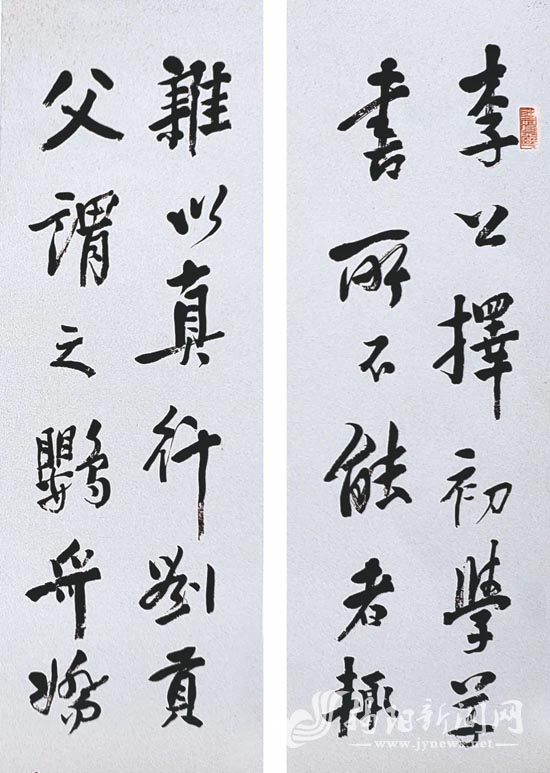 李公擇初學草
書所不能者輒
雜以真行劉貢
父謂之鸚哥嬌
揭阳新闻网
www.jynews.net